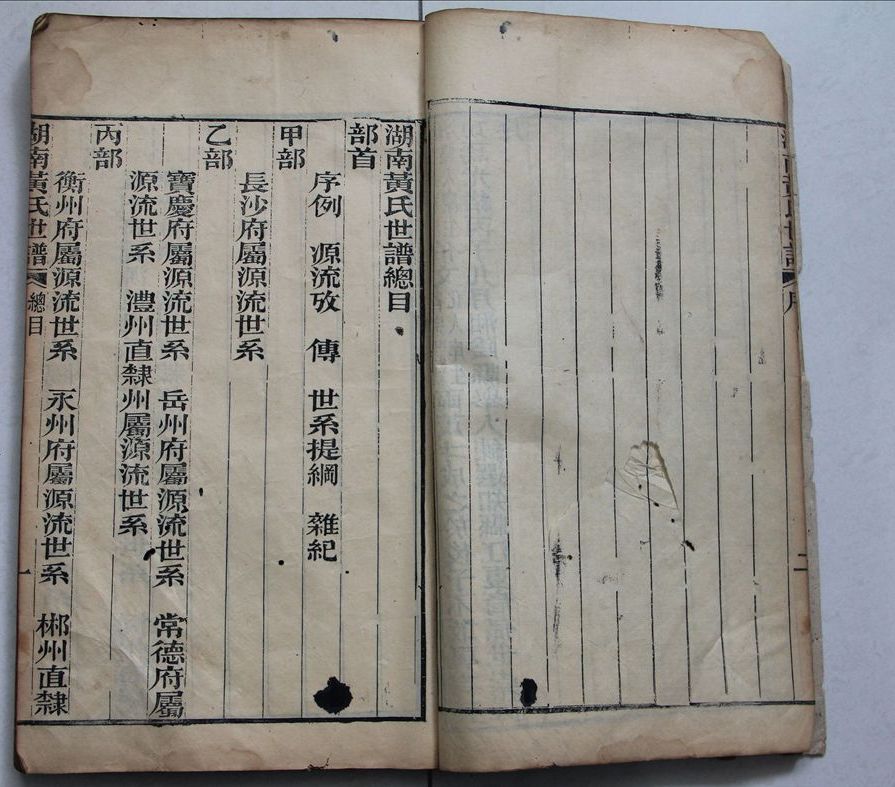 湖南黃氏世譜總目
部首
序例　源流攷　傳　世系提綱　雜紀
甲部
長沙府屬源流世系
乙部
寶慶府屬源流世系　岳州府屬源流世系　常德府屬
源流世系　澧州直隸州屬源流世系
丙部
衡州府屬源流世系　永州府屬源流世系　郴州直隸
湖南黃氏世譜　總目　一